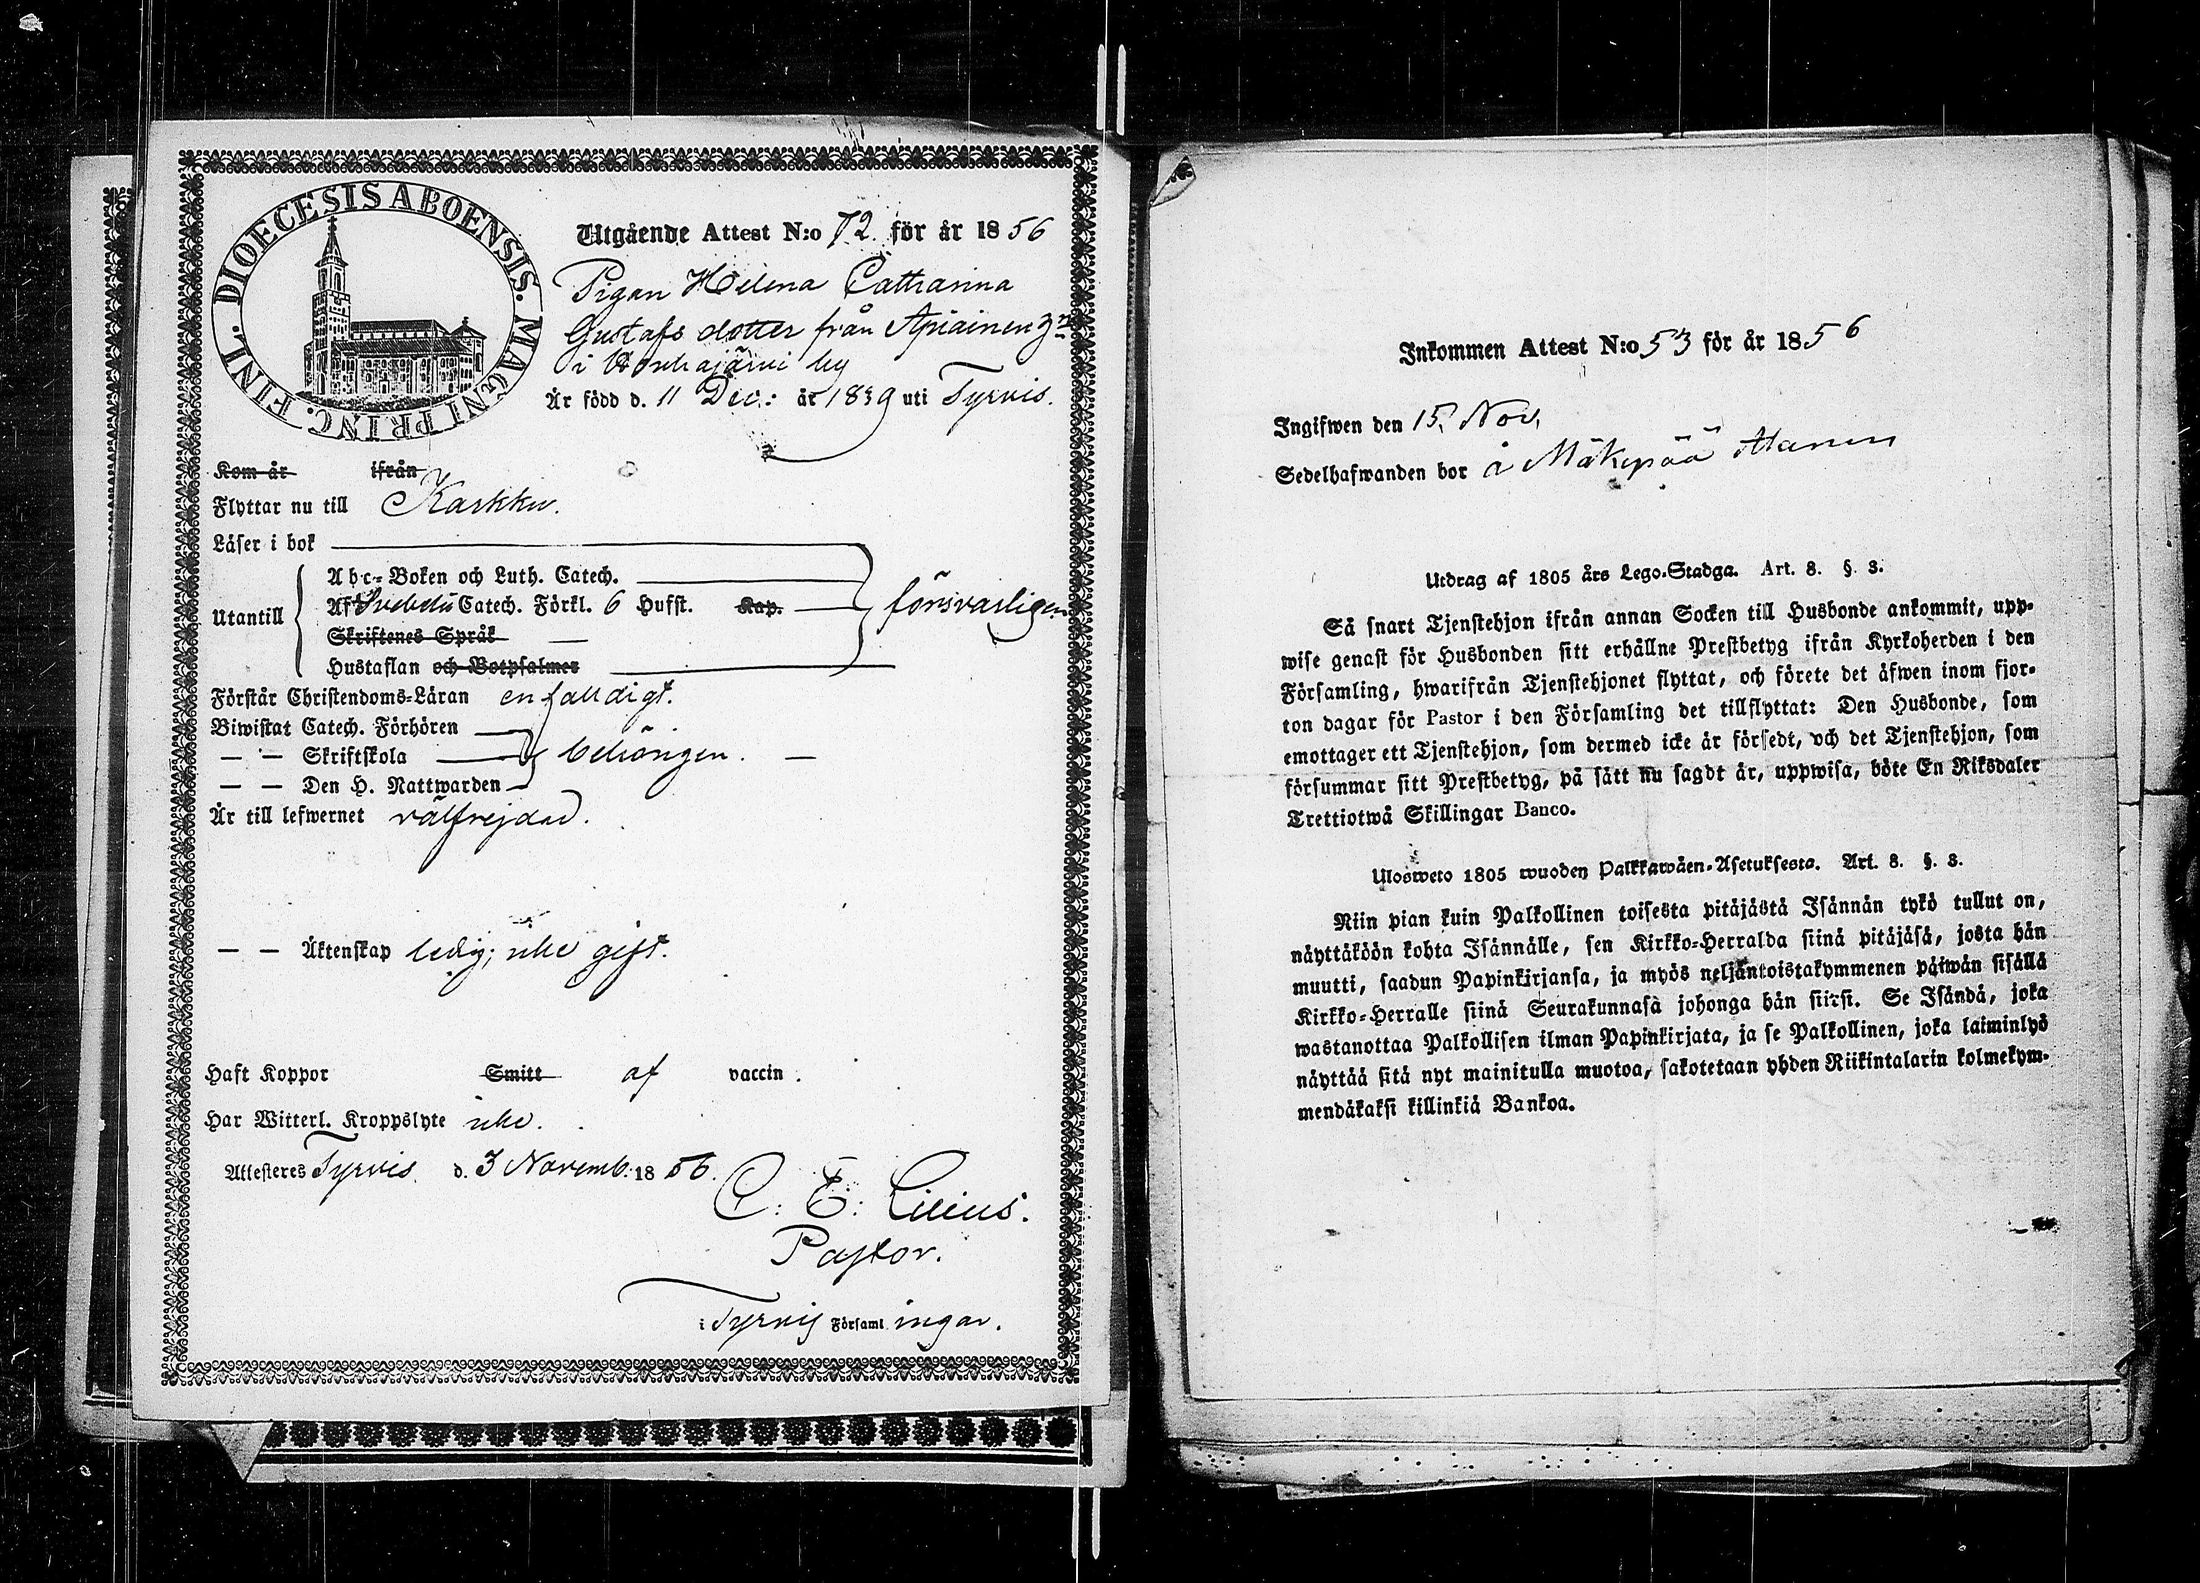 DIOECESIS ABOENSIS. MAGNI PRINC. FINL.
Utgående Attest N:o 72 för år 1856
Pigan Helena Catharina
Gustafs dotter från Apiainen
i by
Är född d. 11 Dec: år 1839 uti Tyrvis.
Kom år ifrån
Flyttar nu till Karkku.
Läser i bok
Abc-Boken och Luth. Catech.
Utantill Af Svebelii Catech. Förkl. 6 Hufst. Kap. försvarligen
Skriftenes Språk
Hustaflan och Botpsalmer
Förstår Christendoms-Läran enfalldigt.
Biwistat Catech. Förhören
— — Skriftskola behörigen.
— — Den H. Nattwarden
Är till lefwernet välfrejdad.
— — Äktenskap ledig; icke gift.
Haft Koppor Smitt af vaccin.
Har Witterl. Kroppslyte icke.
Attesteres Tyrvis d. 3 Novemb. 1856.
C. E. Lilius.
Pastor.
i Tyrvis Församl ingar.
Inkommen Attest N:o 53 för år 1856
Ingifwen den 15. Nov.
Sedelhafwanden bor å Mäkipää
Utdrag af 1805 års Lego-Stadga. Art. 8. §. 3.
Så snart Tjenstehjon ifrån annan Socken till Husbonde ankommit, upp-
wise genast för Husbonden sitt erhållne Prestbetyg ifrån Kyrkoherden i den
Församling, hwarifrån Tjenstehjonet flyttat, och förete det äfwen inom fjor-
ton dagar för Pastor i den Församling det tillflyttat: Den Husbonde, som
emottager ett Tjenstehjon, som dermed icke är försedt, och det Tjenstehjon, som
försummar sitt Prestbetyg, på sätt nu sagdt är, uppwisa, böte En Riksdaler
Trettiotwå Skillingar Banco.
Ulosweto 1805 wuoden Palkkawäen-Asetuksesta. Art. 8. §. 3.
Niin pian kuin Palkollinen toisesta pitäjästä Isännän tykö tullut on,
näyttäköön kohta Isännälle, sen Kirkko-Herralda siinä pitäjäsä, josta hän
muutti, saadun Papinkirjansa, ja myös neljäntoistakymmenen päiwän sisällä
Kirkko-Herralle siinä Seurakunnasa johonga hän siirsi. Se Isändä, joka
wastanottaa Palkollisen ilman Papinkirjata, ja se Palkollinen, joka laiminlyö
näyttää sitä nyt mainitulla muotoa, sakotetaan yhden Riikintalarin kolmekym-
mendäkaksi killinkiä Bankoa.